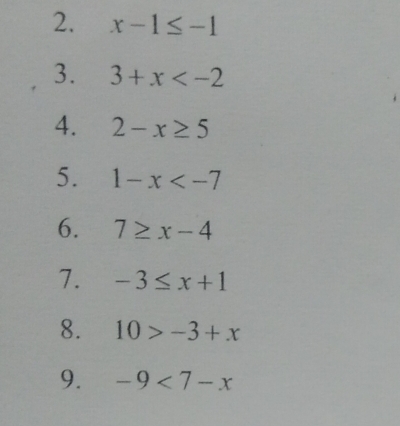 2. x − 1 ≤ −1
3. 3 + x < −2
4. 2 − x ≥ 5
5. 1 − x < −7
6. 7 ≥ x − 4
7. −3 ≤ x + 1
8. 10 > −3 + x
9. −9 < 7 − x